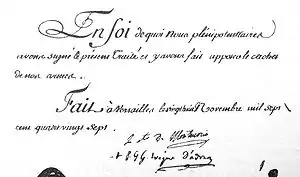 En foi de quoi Nous plénipotentiaires
avons signé le présent Traité et y avons fait apposer le cachet
de nos armes.
Fait à Versailles le vingt huit Novembre mil sept
cent quatre vingt sept.
le cte de Montmorin
+ P J G évêque d'Adran